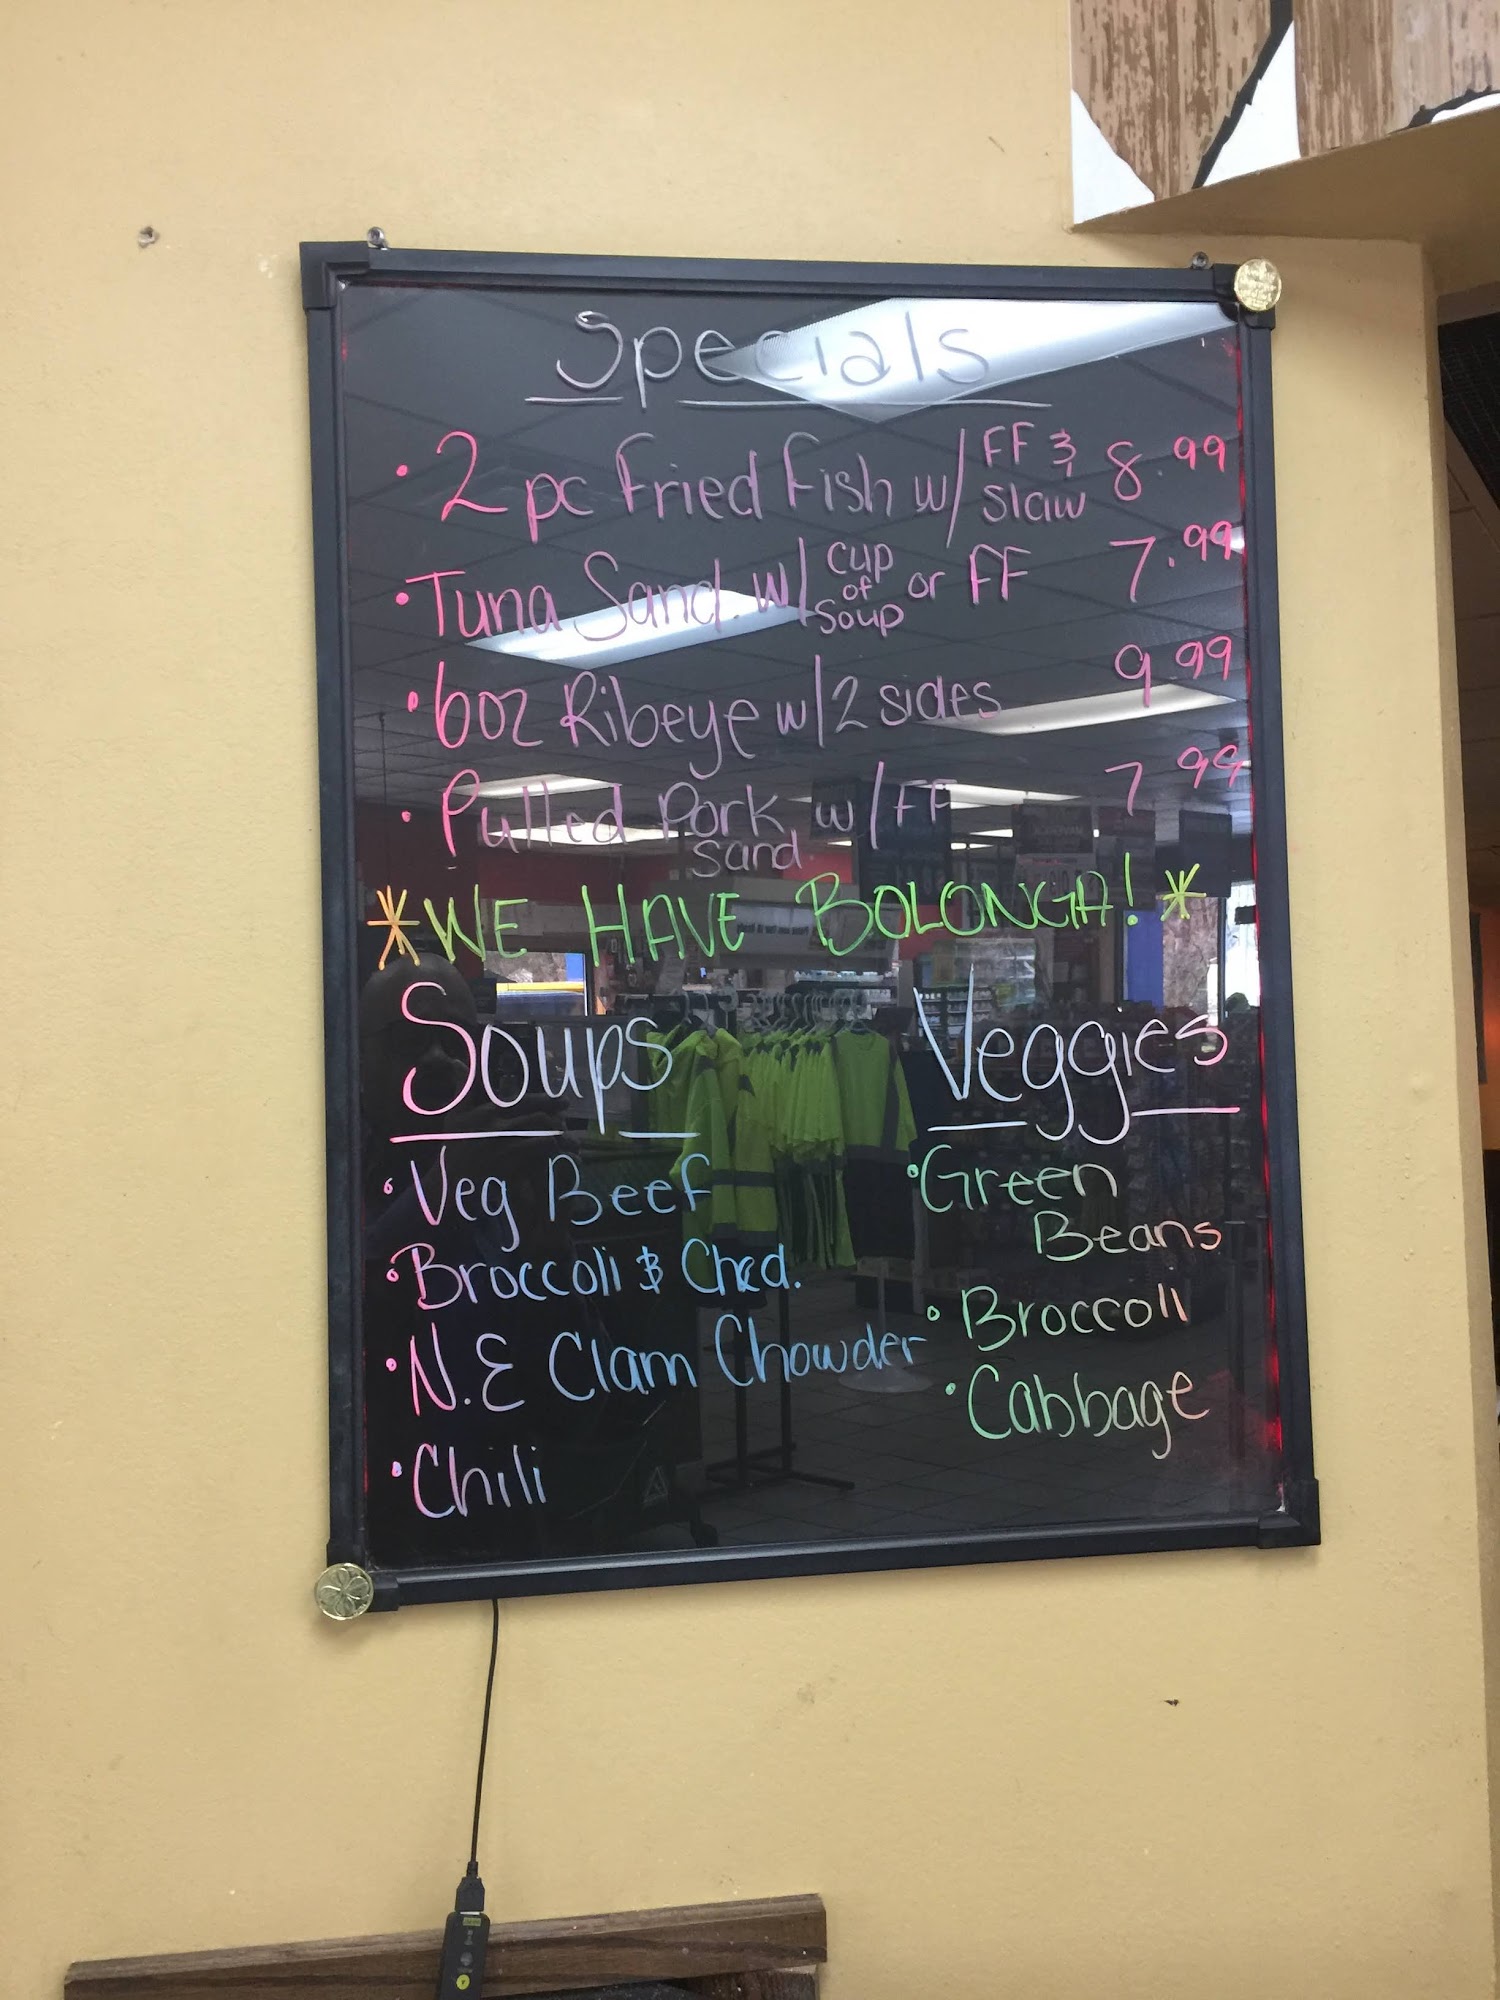 Specials
• 2 pc Fried Fish w/ FF & Slaw 8.99
• Tuna Sand. w/ cup of Soup or FF 7.99
• 6oz Ribeye w/ 2 sides 9.99
• Pulled Pork Sand. w/ FF 7.99
* WE HAVE BOLONGA! *
Soups
• Veg Beef
• Broccoli & Ched.
• N.E Clam Chowder
• Chili
Veggies
• Green Beans
• Broccoli
• Cabbage